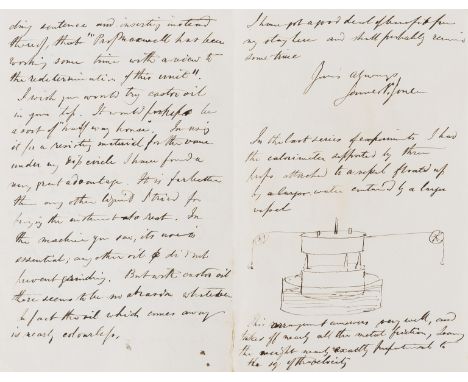 ding sentence and inserting instead
thereof, that "Prof Maxwell has been
working some time with a view to
the redetermination of this unit".
I wish you would try castor oil
in your top. It would perhaps be
a sort of half way house. In using
it for a resisting material for the vane
under my dip circle I have found a
very great advantage. It is far better
than any other liquid I tried for
bringing the instrument to rest. In
the machine you saw, its use is
essential, any other oil did not
prevent grinding. But with castor oil
there seems to be no abrasion whatever
In fact the oil which comes away
is nearly colourless.
I have got a good deal of benefit from
my stay here and shall probably remain
some time
Yours always
James P Joule
In the last series of experiments I had
the calorimeter supported by three
props attached to a vessel floated up
by water contained by a large
vessel
This arrangement answers very well, and
takes off nearly all the metal friction, leaving
the weight nearly exactly proportional to
the sq of the velocity